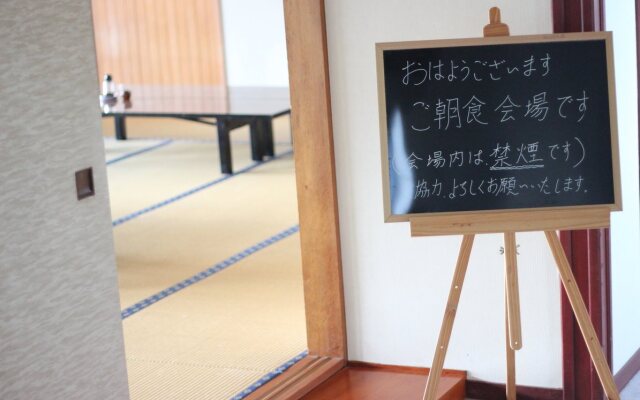 おはようございます
ご朝食会場です
(会場内は禁煙です)
協力よろしくお願いいたします.